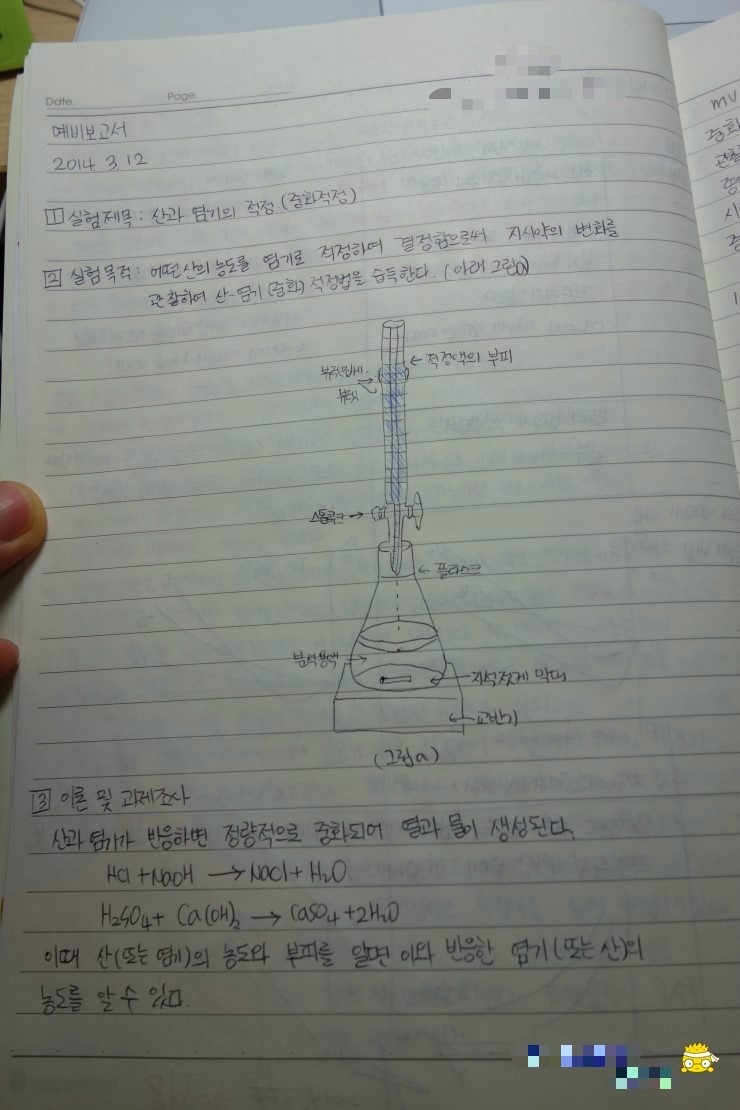 Date
Page
예비보고서
2014. 3. 12
1 실험제목 : 산과 염기의 적정 (중화적정)
2 실험목적 : 어떤 산의 농도를 염기로 적정하여 결정함으로써 지시약의 변화를
관찰하여 산-염기 (중화) 적정법을 습득한다. (아래 그림a)
← 적정액의 부피
뷰렛
스톱콕크 →
← 플라스크
분석용액 →
← 자석젓게 막대
← 교반기
(그림 a)
3 이론 및 과제조사
산과 염기가 반응하면 정량적으로 중화되어 염과 물이 생성된다.
HCl + NaOH → NaCl + H₂O
H₂SO₄ + Ca(OH)₂ → CaSO₄ + 2H₂O
이때 산(또는 염기)의 농도와 부피를 알면 이와 반응한 염기(또는 산)의
농도를 알 수 있다.